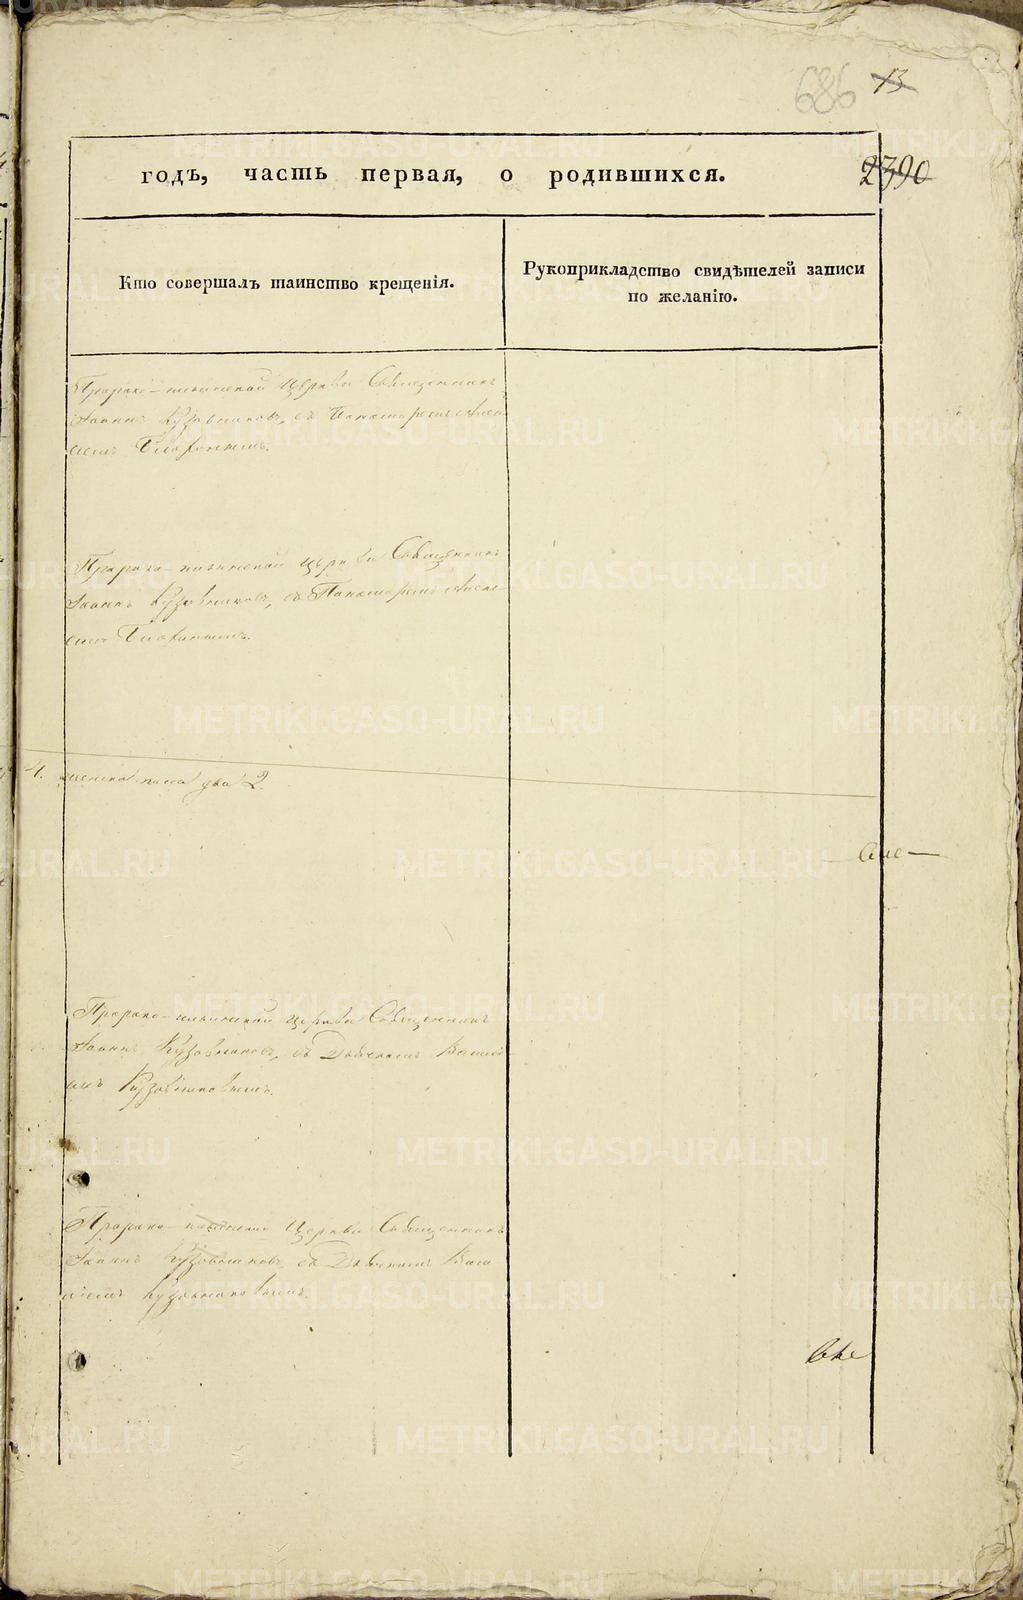 686 13
2390
годъ, часть первая, о родившихся.
Кто совершалъ таинство крещенія.
Рукоприкладство свидѣтелей записи
по желанію.
Пророко-ильинской Церкви Священникъ
Іоаннъ Кузовниковъ, съ Пономаремъ
Пророко-ильинской Церкви Священникъ
Іоаннъ Кузовниковъ, съ Пономаремъ
женска пола два 2.
Пророко-ильинской Церкви Священникъ
Іоаннъ Кузовниковъ, съ Дьячкомъ Васил
емъ Кузовниковымъ.
Пророко-ильинской Церкви Священникъ
Іоаннъ Кузовниковъ, съ Дьячкомъ Васи
ліемъ Кузовниковымъ.
METRIKI.GASO-URAL.RU